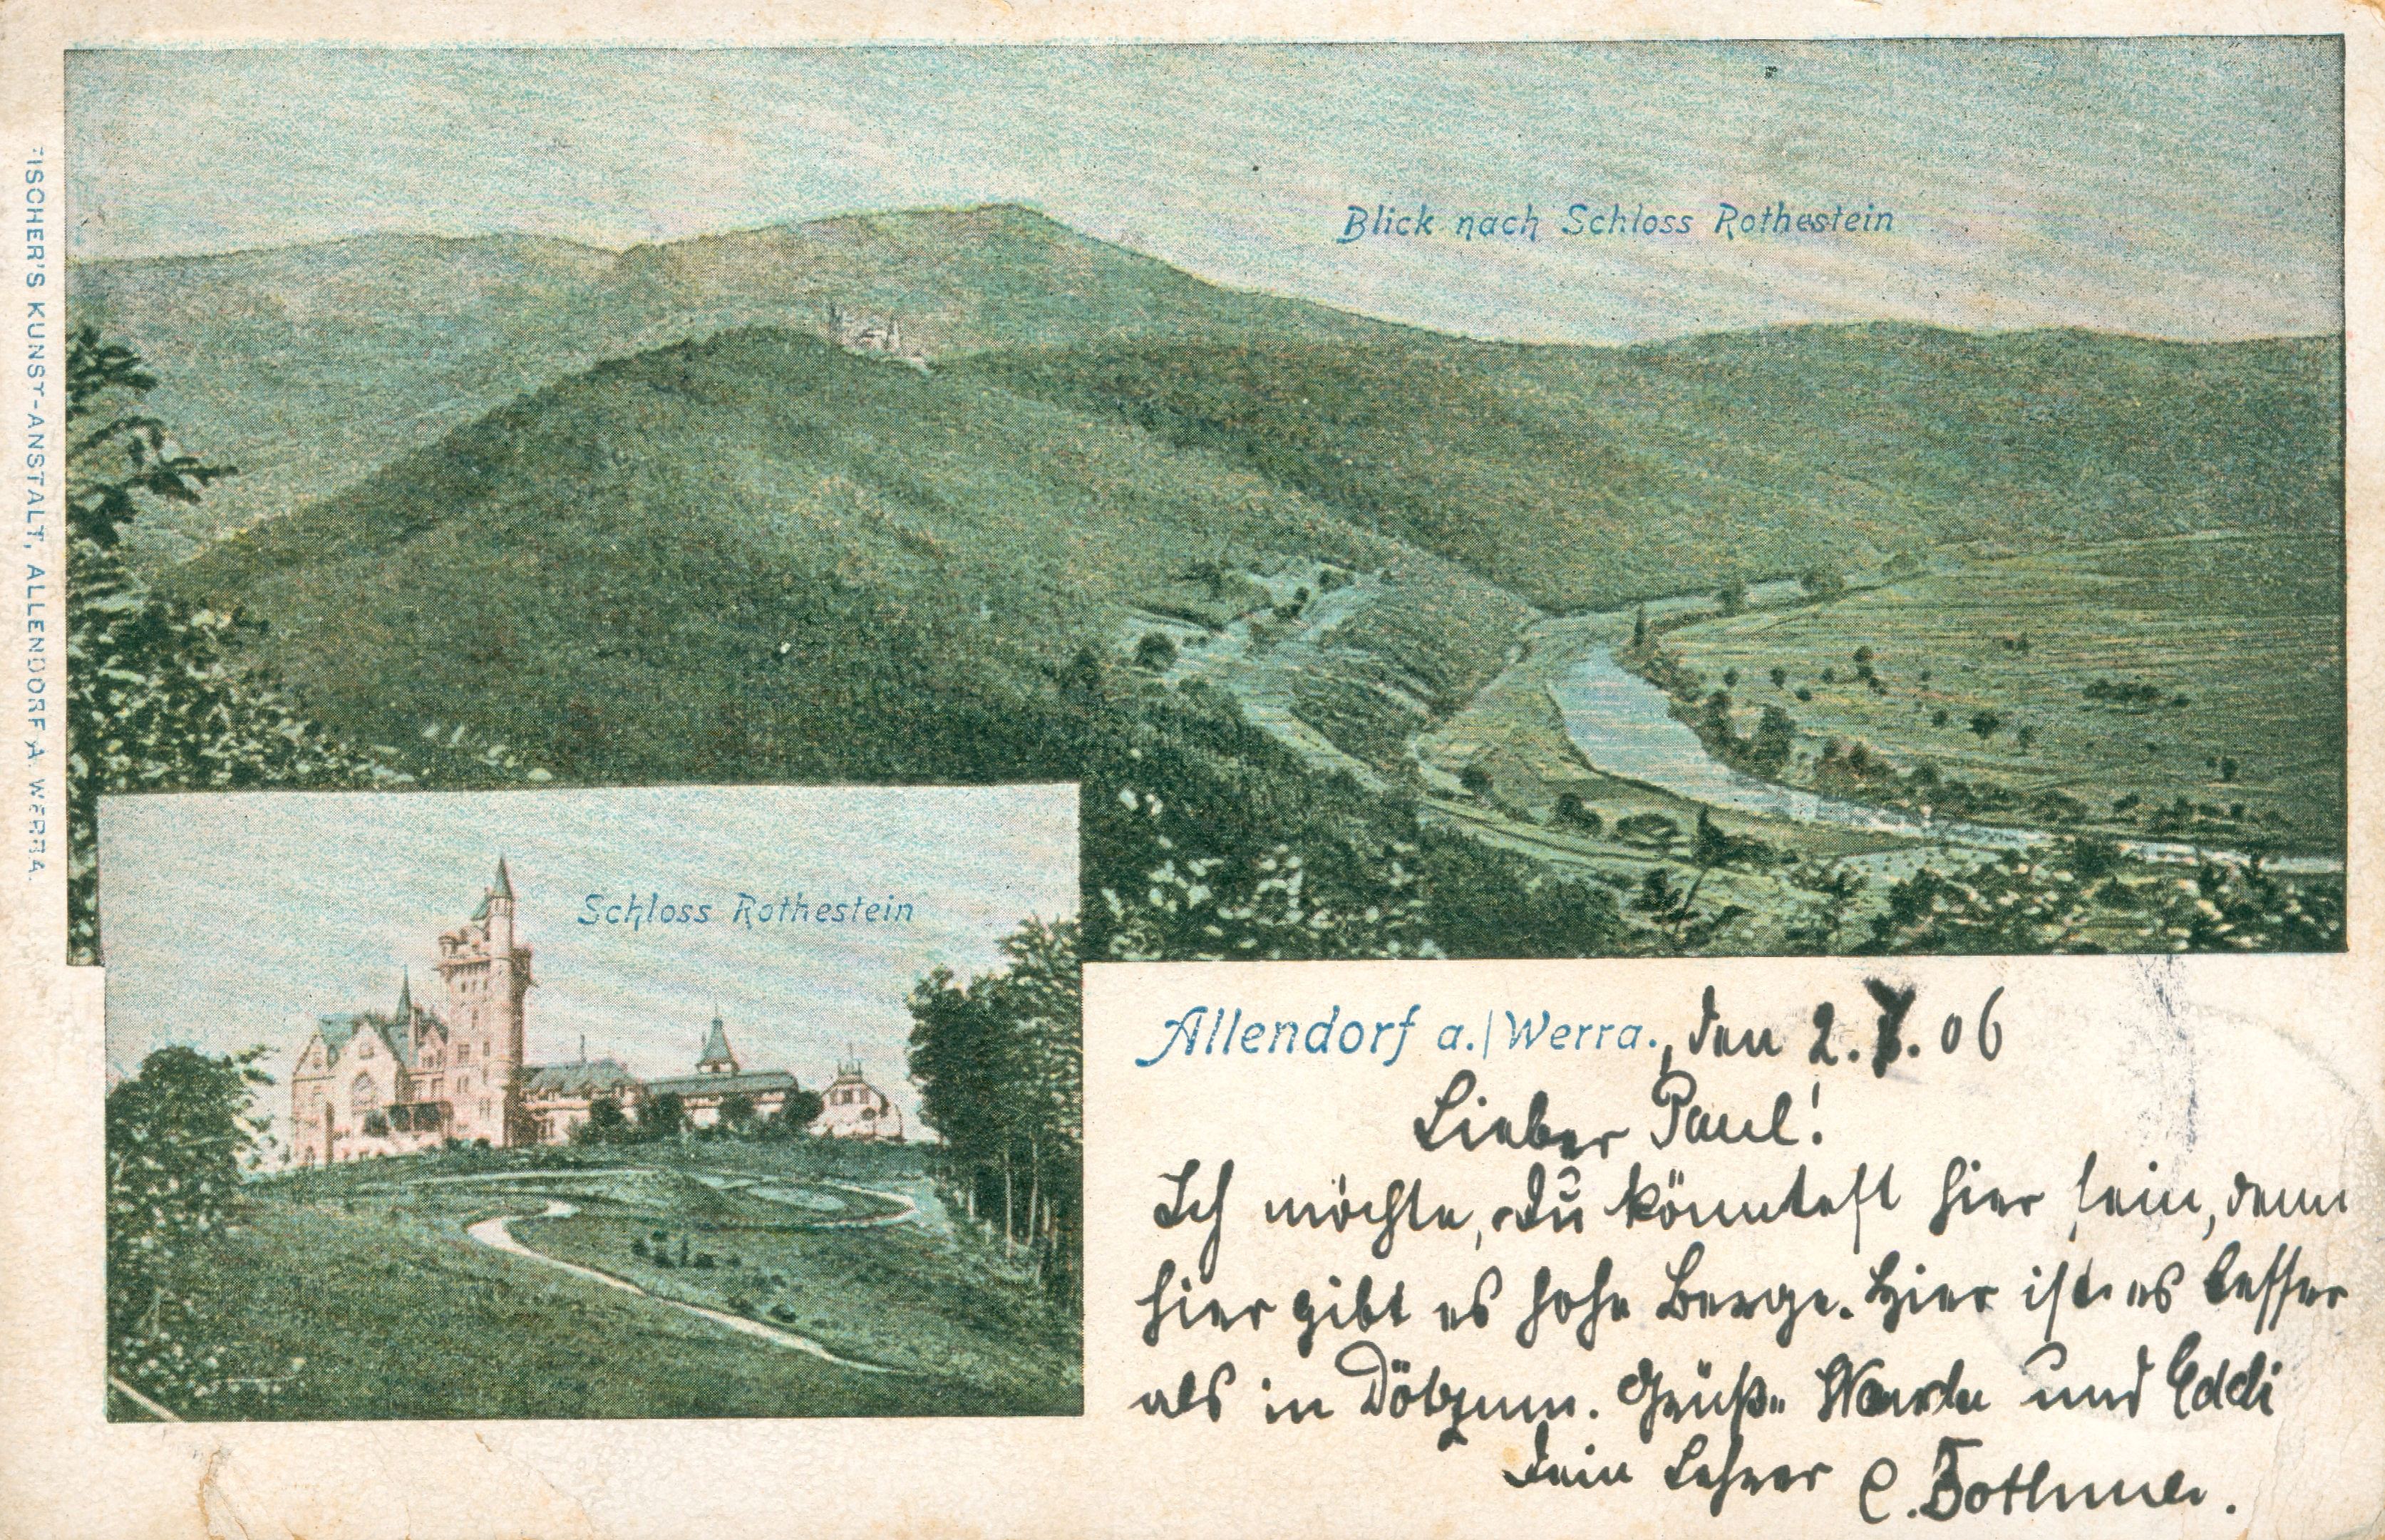 FISCHER'S KUNST-ANSTALT, ALLENDORF A. WERRA.
Blick nach Schloss Rothestein
Schloss Rothestein
Allendorf a./Werra., den 2. . 06
Lieber Paul!
Ich möchte, Du könntest hier sein, denn
hier gibt es hohe Berge. Hier ist es besser
als in Döbzum. Grüße und Eddi
Dein Lehrer C.